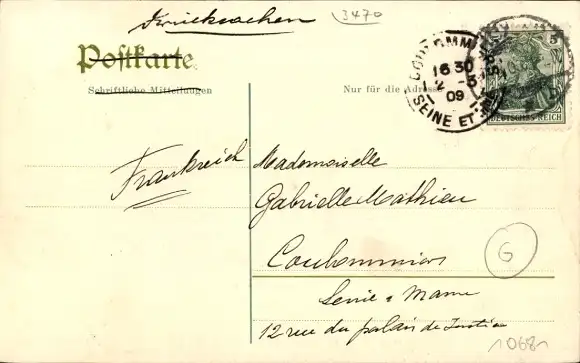 Drucksachen
3470
Postkarte
Schriftliche Mitteilungen
Nur für die Adresse
COULOMM
16 30
2 - 3
09
SEINE ET M
5
DEUTSCHES REICH
Frankreich
Mademoiselle
Gabrielle Mathieu
Coulommiers
Seine & Marne
12 rue du palais de Justice
G
10681